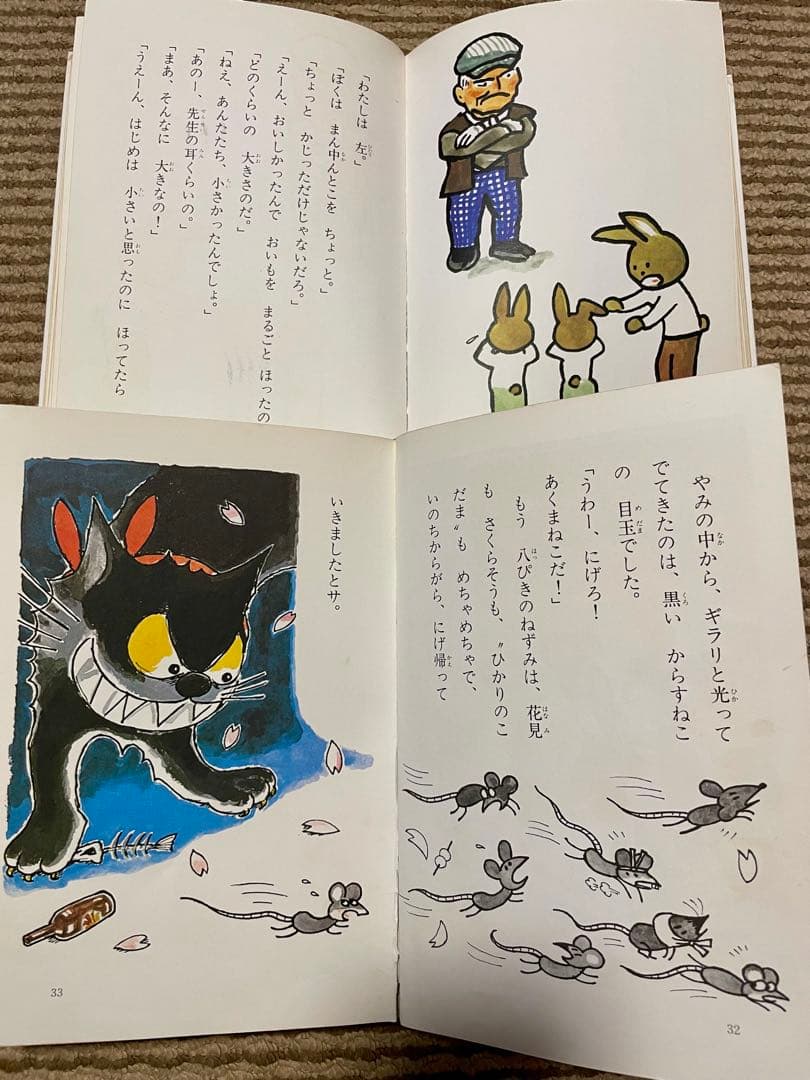 「わたしは　左。」
「ぼくは　まん中んとこを　ちょっと。」
「ちょっと　かじっただけじゃないだろ。」
「えーん、おいしかったんで　おいもを　まるごと　ほったの
「どのくらいの　大きさのだ。」
「ねえ、あんたたち、小さかったんでしょ。」
「あのー、先生の耳くらいの。」
「まあ、そんなに　大きなの！」
「うえーん、はじめは　小さいと思ったのに　ほってたら
やみの中から、ギラリと光って
でてきたのは、黒い　からすねこ
の　目玉でした。
「うわー、にげろ！
あくまねこだ！」
もう　八ぴきのねずみは、花見
も　さくらそうも、〝ひかりのこ
だま〟も　めちゃめちゃで、
いのちからがら、にげ帰って
32
いきましたとサ。
33